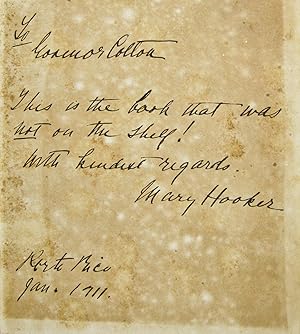 To
Govenor Colton
This is the book that was
not on the shelf!
With kindest regards.
Mary Hooker
Porto Rico
Jan. 1911.